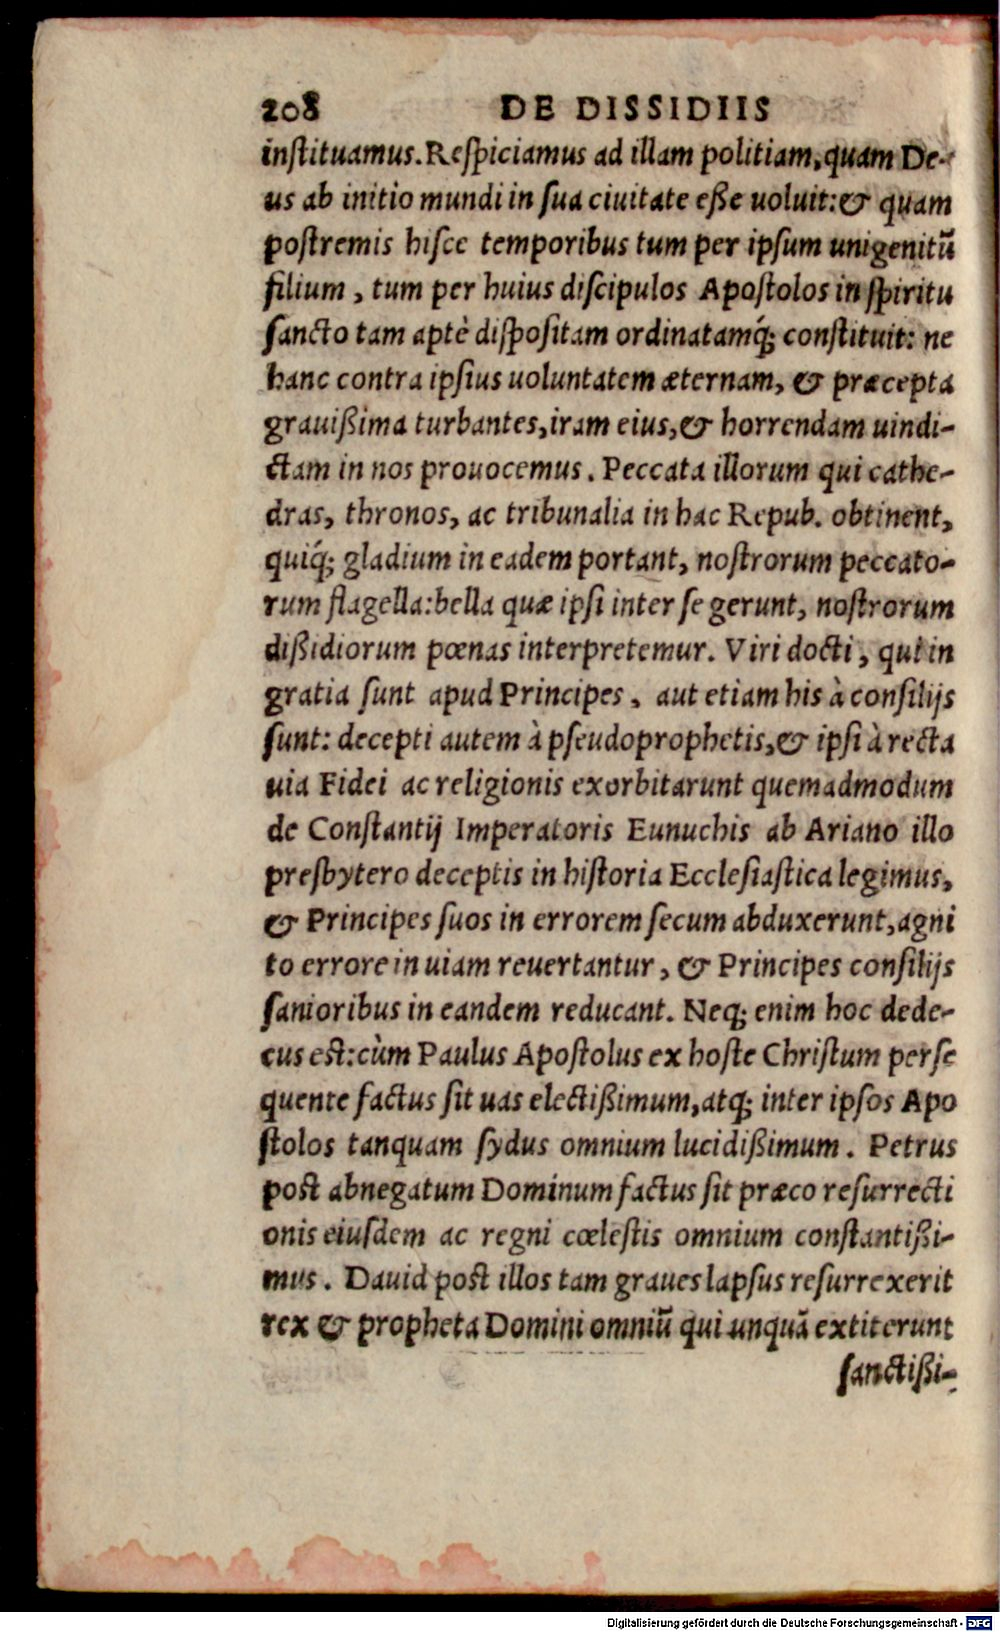 208 DE DISSIDIIS
inſtituamus. Reſpiciamus ad illam politiam, quam De-
us ab initio mundi in ſua ciuitate eſſe uoluit: & quam
poſtremis hiſce temporibus tum per ipſum unigenitū
filium, tum per huius diſcipulos Apoſtolos in ſpiritu
ſancto tam aptè diſpoſitam ordinatamq́; conſtituit: ne
hanc contra ipſius uoluntatem æternam, & præcepta
grauißima turbantes, iram eius, & horrendam uindi-
ctam in nos prouocemus. Peccata illorum qui cathe-
dras, thronos, ac tribunalia in hac Repub. obtinent,
quiq́; gladium in eadem portant, noſtrorum peccato-
rum flagella: bella quæ ipſi inter ſe gerunt, noſtrorum
dißidiorum pœnas interpretemur. Viri docti, qui in
gratia ſunt apud Principes, aut etiam his à conſilijs
ſunt: decepti autem à pſeudoprophetis, & ipſi à recta
uia Fidei ac religionis exorbitarunt quemadmodum
de Conſtantij Imperatoris Eunuchis ab Ariano illo
preſbytero deceptis in hiſtoria Eccleſiaſtica legimus,
& Principes ſuos in errorem ſecum abduxerunt, agni
to errore in uiam reuertantur, & Principes conſilijs
ſanioribus in eandem reducant. Neq; enim hoc dede-
cus eſt: cùm Paulus Apoſtolus ex hoſte Chriſtum perſe
quente factus ſit uas electißimum, atq; inter ipſos Apo
ſtolos tanquam ſydus omnium lucidißimum. Petrus
poſt abnegatum Dominum factus ſit præco reſurrecti
onis eiuſdem ac regni cœleſtis omnium conſtantißi-
mus. Dauid poſt illos tam graues lapſus reſurrexerit
rex & propheta Domini omniū qui unquā extiterunt
ſanctißi-
Digitalisierung gefördert durch die Deutsche Forschungsgemeinschaft - DFG